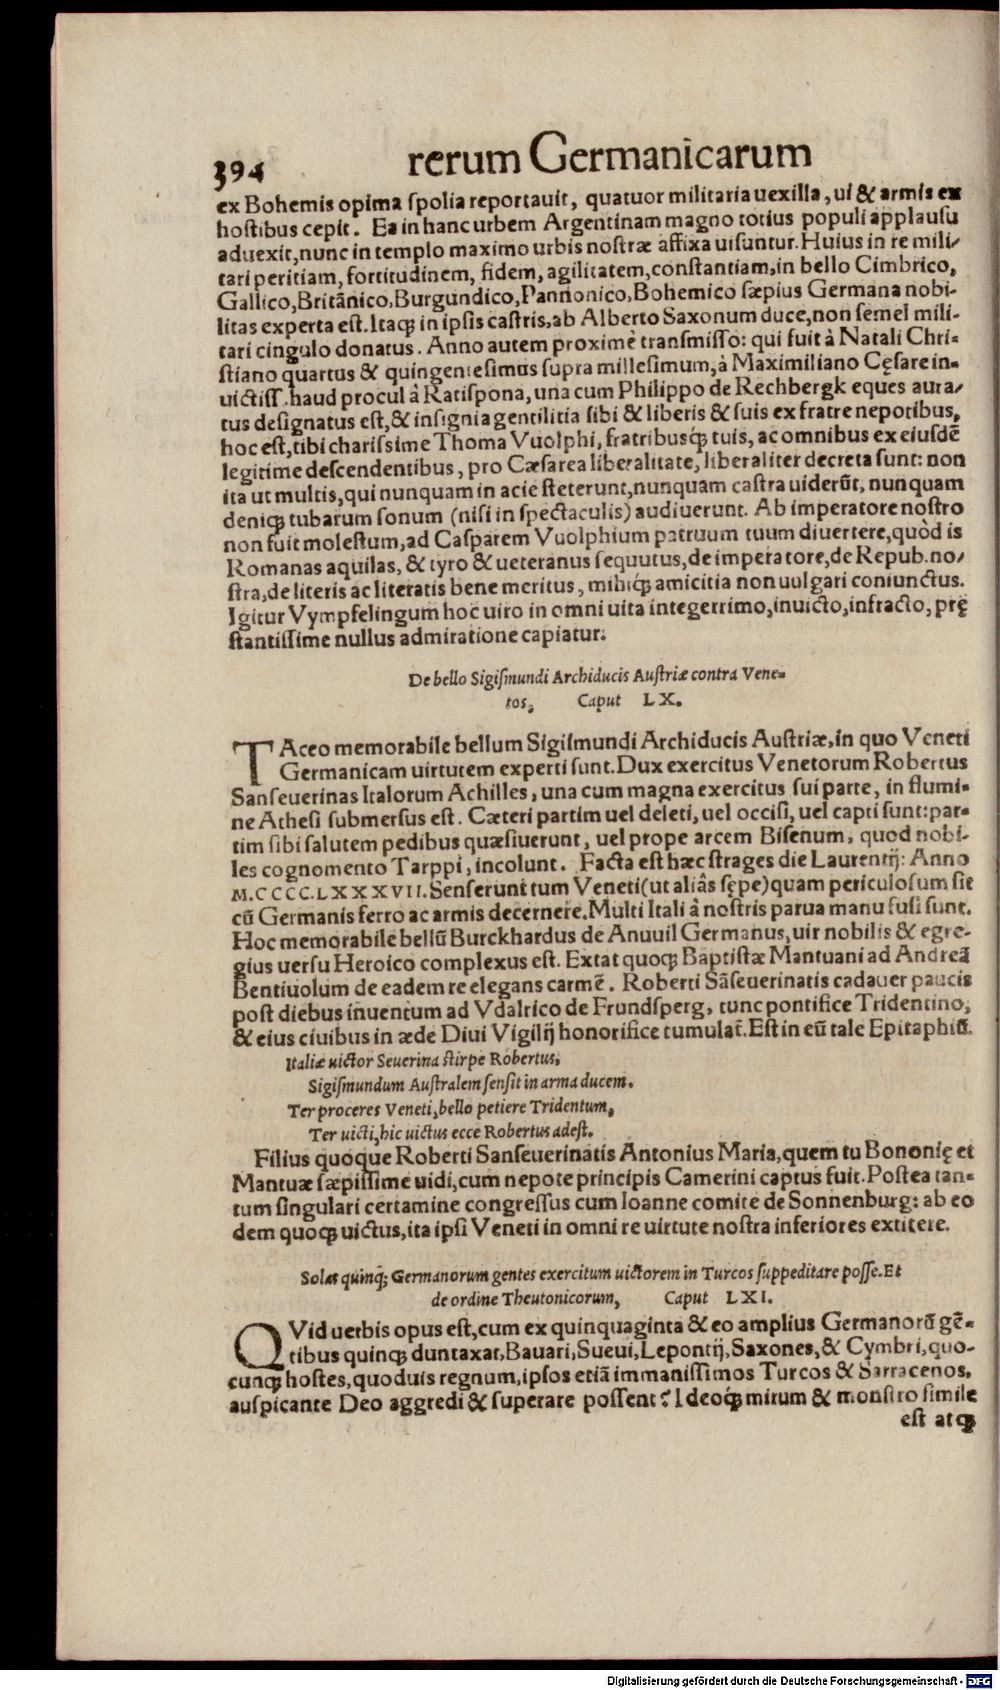 394 rerum Germanicarum
ex Bohemis opima ſpolia reportauit, quatuor militaria uexilla, ui & armis ex
hoſtibus cepit. Ea in hanc urbem Argentinam magno totius populi applauſu
aduexit, nunc in templo maximo urbis noſtræ affixa uiſuntur. Huius in re mili/
tari peritiam, fortitudinem, fidem, agilitatem, conſtantiam, in bello Cimbrico,
Gallico, Britānico, Burgundico, Pannonico, Bohemico ſæpius Germana nobi-
litas experta eſt. Itaqꝫ in ipſis caſtris, ab Alberto Saxonum duce, non ſemel mili-
tari cingulo donatus. Anno autem proximè transmiſſo: qui fuit à Natali Chri-
ſtiano quartus & quingenteſimus ſupra milleſimum, à Maximiliano Cęſare in-
uictiſſ. haud procul à Ratiſpona, una cum Philippo de Rechbergk eques aura/
tus deſignatus eſt, & inſignia gentilitia ſibi & liberis & ſuis ex fratre nepotibus,
hoc eſt, tibi chariſsime Thoma Vuolphi, fratribusqꝫ tuis, ac omnibus ex eiuſdē
legitime deſcendentibus, pro Cæſarea liberalitate, liberaliter decreta ſunt: non
ita ut multis, qui nunquam in acie ſteterunt, nunquam caſtra uiderūt, nunquam
deniqꝫ tubarum ſonum (niſi in ſpectaculis) audiuerunt. Ab imperatore noſtro
non fuit moleſtum, ad Caſparem Vuolphium patruum tuum diuertere, quòd is
Romanas aquilas, & tyro & ueteranus ſequutus, de imperatore, de Repub. no/
ſtra, de literis ac literatis bene meritus, mihiqꝫ amicitia non uulgari coniunctus.
Igitur Vympfelingum hoc uiro in omni uita integerrimo, inuicto, infracto, prę
ſtantiſſime nullus admiratione capiatur.
De bello Sigiſmundi Archiducis Auſtriæ contra Vene-
tos, Caput LX.
TAceo memorabile bellum Sigiſmundi Archiducis Auſtriæ, in quo Veneti
Germanicam uirtutem experti ſunt. Dux exercitus Venetorum Robertus
Sanſeuerinas Italorum Achilles, una cum magna exercitus ſui parte, in flumi-
ne Atheſi ſubmerſus eſt. Cæteri partim uel deleti, uel occiſi, uel capti ſunt: par-
tim ſibi ſalutem pedibus quæſiuerunt, uel prope arcem Biſenum, quod nobi-
les cognomento Tarppi, incolunt. Facta eſt hæc ſtrages die Laurentij: Anno
M.CCCC.LXXXVII. Senſerunt tum Veneti (ut aliâs ſępe) quam periculoſum ſit
cū Germanis ferro ac armis decernere. Multi Itali à noſtris parua manu fuſi ſunt.
Hoc memorabile bellū Burckhardus de Anuuil Germanus, uir nobilis & egre-
gius uerſu Heroico complexus eſt. Extat quoqꝫ Baptiſtæ Mantuani ad Andreā
Bentiuolum de eadem re elegans carmē. Roberti Sāſeuerinatis cadauer paucis
poſt diebus inuentum ad Vdalrico de Frundſperg, tunc pontifice Tridentino,
& eius ciuibus in æde Diui Vigilij honorifice tumulat̃. Eſt in eū tale Epitaphiū.
Italiæ uictor Seuerina ſtirpe Robertus,
Sigiſmundum Auſtralem ſenſit in arma ducem.
Ter proceres Veneti, bello petiere Tridentum,
Ter uicti, hic uictus ecce Robertus adeſt.
Filius quoque Roberti Sanſeuerinatis Antonius Maria, quem tu Bononię et
Mantuæ ſæpiſſime uidi, cum nepote principis Camerini captus fuit. Poſtea tan-
tum ſingulari certamine congreſſus cum Ioanne comite de Sonnenburg: ab eo
dem quoqꝫ uictus, ita ipſi Veneti in omni re uirtute noſtra inferiores extitere.
Solas quinqꝫ Germanorum gentes exercitum uictorem in Turcos ſuppeditare poſſe. Et
de ordine Theutonicorum, Caput LXI.
QVid uerbis opus eſt, cum ex quinquaginta & eo amplius Germanorū gē-
tibus quinqꝫ duntaxat, Bauari, Sueui, Lepontij, Saxones, & Cymbri, quo-
cunqꝫ hoſtes, quoduis regnum, ipſos etiā immaniſſimos Turcos & Sarracenos,
auſpicante Deo aggredi & ſuperare poſſent? Ideoqꝫ mirum & monſtro ſimile
eſt atqꝫ
Digitalisierung gefördert durch die Deutsche Forschungsgemeinschaft - DFG